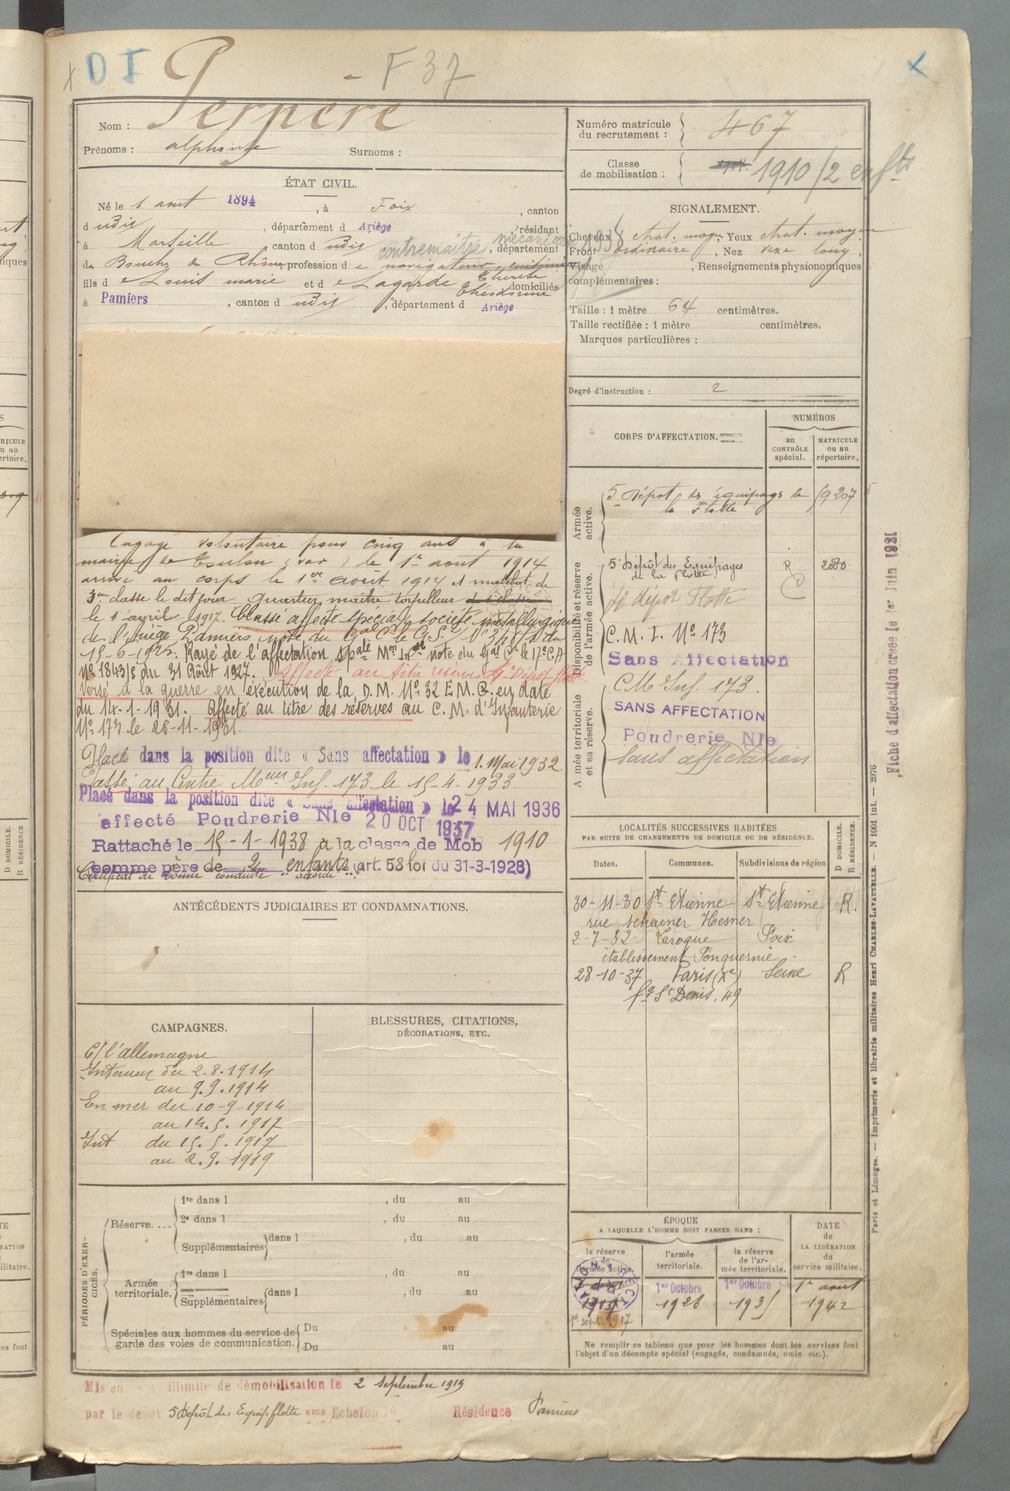 D I
F 37
Nom : Perpère
Prénoms : alphonse Surnoms :
Numéro matricule du recrutement : 467
Classe de mobilisation : 1910 / 2 enfts
ÉTAT CIVIL.
Né le 1 aout 1894, à Foix, canton
d udit, département d Ariège, résidant
à Marseille, canton d udit, département
du Bouches du Rhône profession d e navigateur
contremaître mécanicien
fils d e Louis marie et d e Lagarde domiciliés
à Pamiers, canton d udit, département d Ariège
SIGNALEMENT.
Cheveux chat. moyen, Yeux chat. moyen
Front ordinaire, Nez long,
Visage , Renseignements physionomiques
complémentaires :
Taille : 1 mètre 64 centimètres.
Taille rectifiée : 1 mètre centimètres.
Marques particulières :
Degré d'instruction : 2
CORPS D'AFFECTATION.
NUMÉROS
au CONTRÔLE spécial.
MATRICULE ou au répertoire.
Armée active.
5e Dépôt des équipages de la Flotte
Disponibilité et réserve de l'armée active.
5e Dépôt des Equipages de la Flotte R
dépôt Flotte
C.M.I. No 173
Sans Affectation
Armée territoriale et sa réserve.
C M Inf. 173.
SANS AFFECTATION
Poudrerie Nle
Sans affectation
Engagé volontaire pour cinq ans à la
mairie de Toulon (var) le 1er aout 1914
arrivé au corps le 1er aout 1914 et matelot de
3me classe le dit jour Quartier maître torpilleur
le 1 avril 1917. Classé affecté spécial société métallurgique
de l'Ariège Pamiers note du
15-6-1925. Rayé de l'affectation spale note du Gal Ct le 17e C.A
No 1843/S du 31 Août 1927. Affecté au titre réserve 5e Dépôt flotte
Versé à la guerre en exécution de la D.M. No 32 E.M.G. en date
du 14-1-1931. Affecté au titre des réserves au C.M. d'Infanterie
No 173 le 28-11-1931.
Placé dans la position dite « Sans affectation » le 1. Mai 1932
Classé au Centre Mon Inf. 173 le 15-4-1933
Placé dans la position dite « Sans affectation » le 24 MAI 1936
affecté Poudrerie Nle 20 OCT 1937
Rattaché le 15-1-1938 à la classe de Mob 1910
comme père de 2 enfants (art. 58 loi du 31-3-1928)
Certificat de bonne conduite accordé
LOCALITÉS SUCCESSIVES HABITÉES
PAR SUITE DE CHANGEMENTS DE DOMICILE OU DE RÉSIDENCE.
Dates. Communes. Subdivisions de région
D DOMICILE.
R RÉSIDENCE.
30-11-30 St Etienne St Etienne R.
rue
2-7-32 Laroque Foix
établissement
28-10-37 Paris (Xe) Seine R
fg St Denis. 49
ANTÉCÉDENTS JUDICIAIRES ET CONDAMNATIONS.
CAMPAGNES.
C/ l'allemagne
Intérieur du 2.8.1914
au 9.9.1914
En mer du 10-9-1914
au 14.5.1917
Int du 15.5.1917
au 2.9.1919
BLESSURES, CITATIONS,
DÉCORATIONS, ETC.
PÉRIODES D'EXERCICES.
Réserve....
1re dans l , du au
2e dans l , du au
Supplémentaires dans l , du au
Armée territoriale.
1re dans l , du au
Supplémentaires dans l , du au
Spéciales aux hommes du service de garde des voies de communication.
Du au
Du au
ÉPOQUE
A LAQUELLE L'HOMME DOIT PASSER DANS :
la réserve de l'armée active.
l'armée territoriale.
la réserve de l'armée territoriale.
DATE
de
LA LIBÉRATION
du
service militaire.
1er Octobre 1928
1er Octobre
1er aout 1942
Ne remplir ce tableau que pour les hommes dont les services font
l'objet d'un décompte spécial (engagés, condamnés, omis etc.).
Mis en illimité de démobilisation le 2 Septembre 1919
par le dépôt 5 Dépôt des Equip. flotte Echelon Résidence Pamiers
Fiche d'affectation créée le 1er Juin 1931
Paris et Limoges. — Imprimerie et librairie militaires Henri CHARLES-LAVAUZELLE. — N 1001 int. — 2076